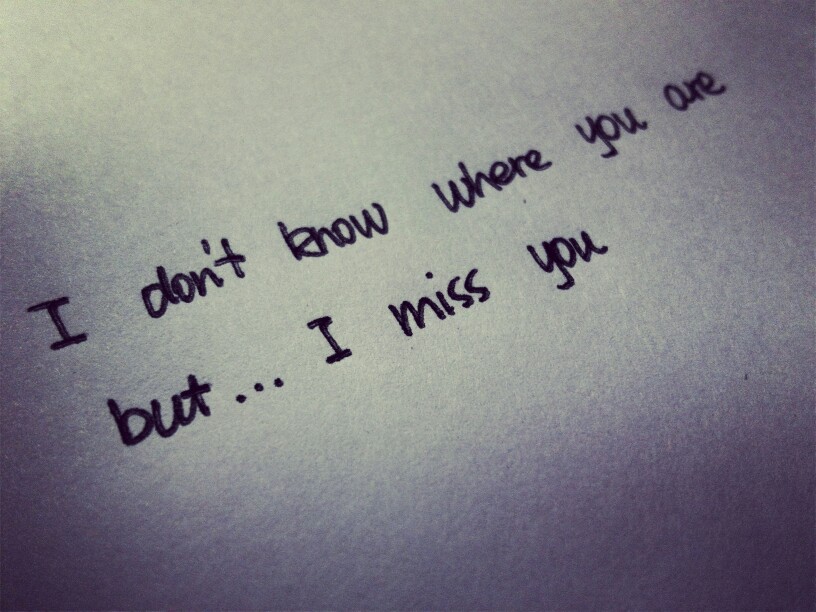 I don't know where you are
but... I miss you